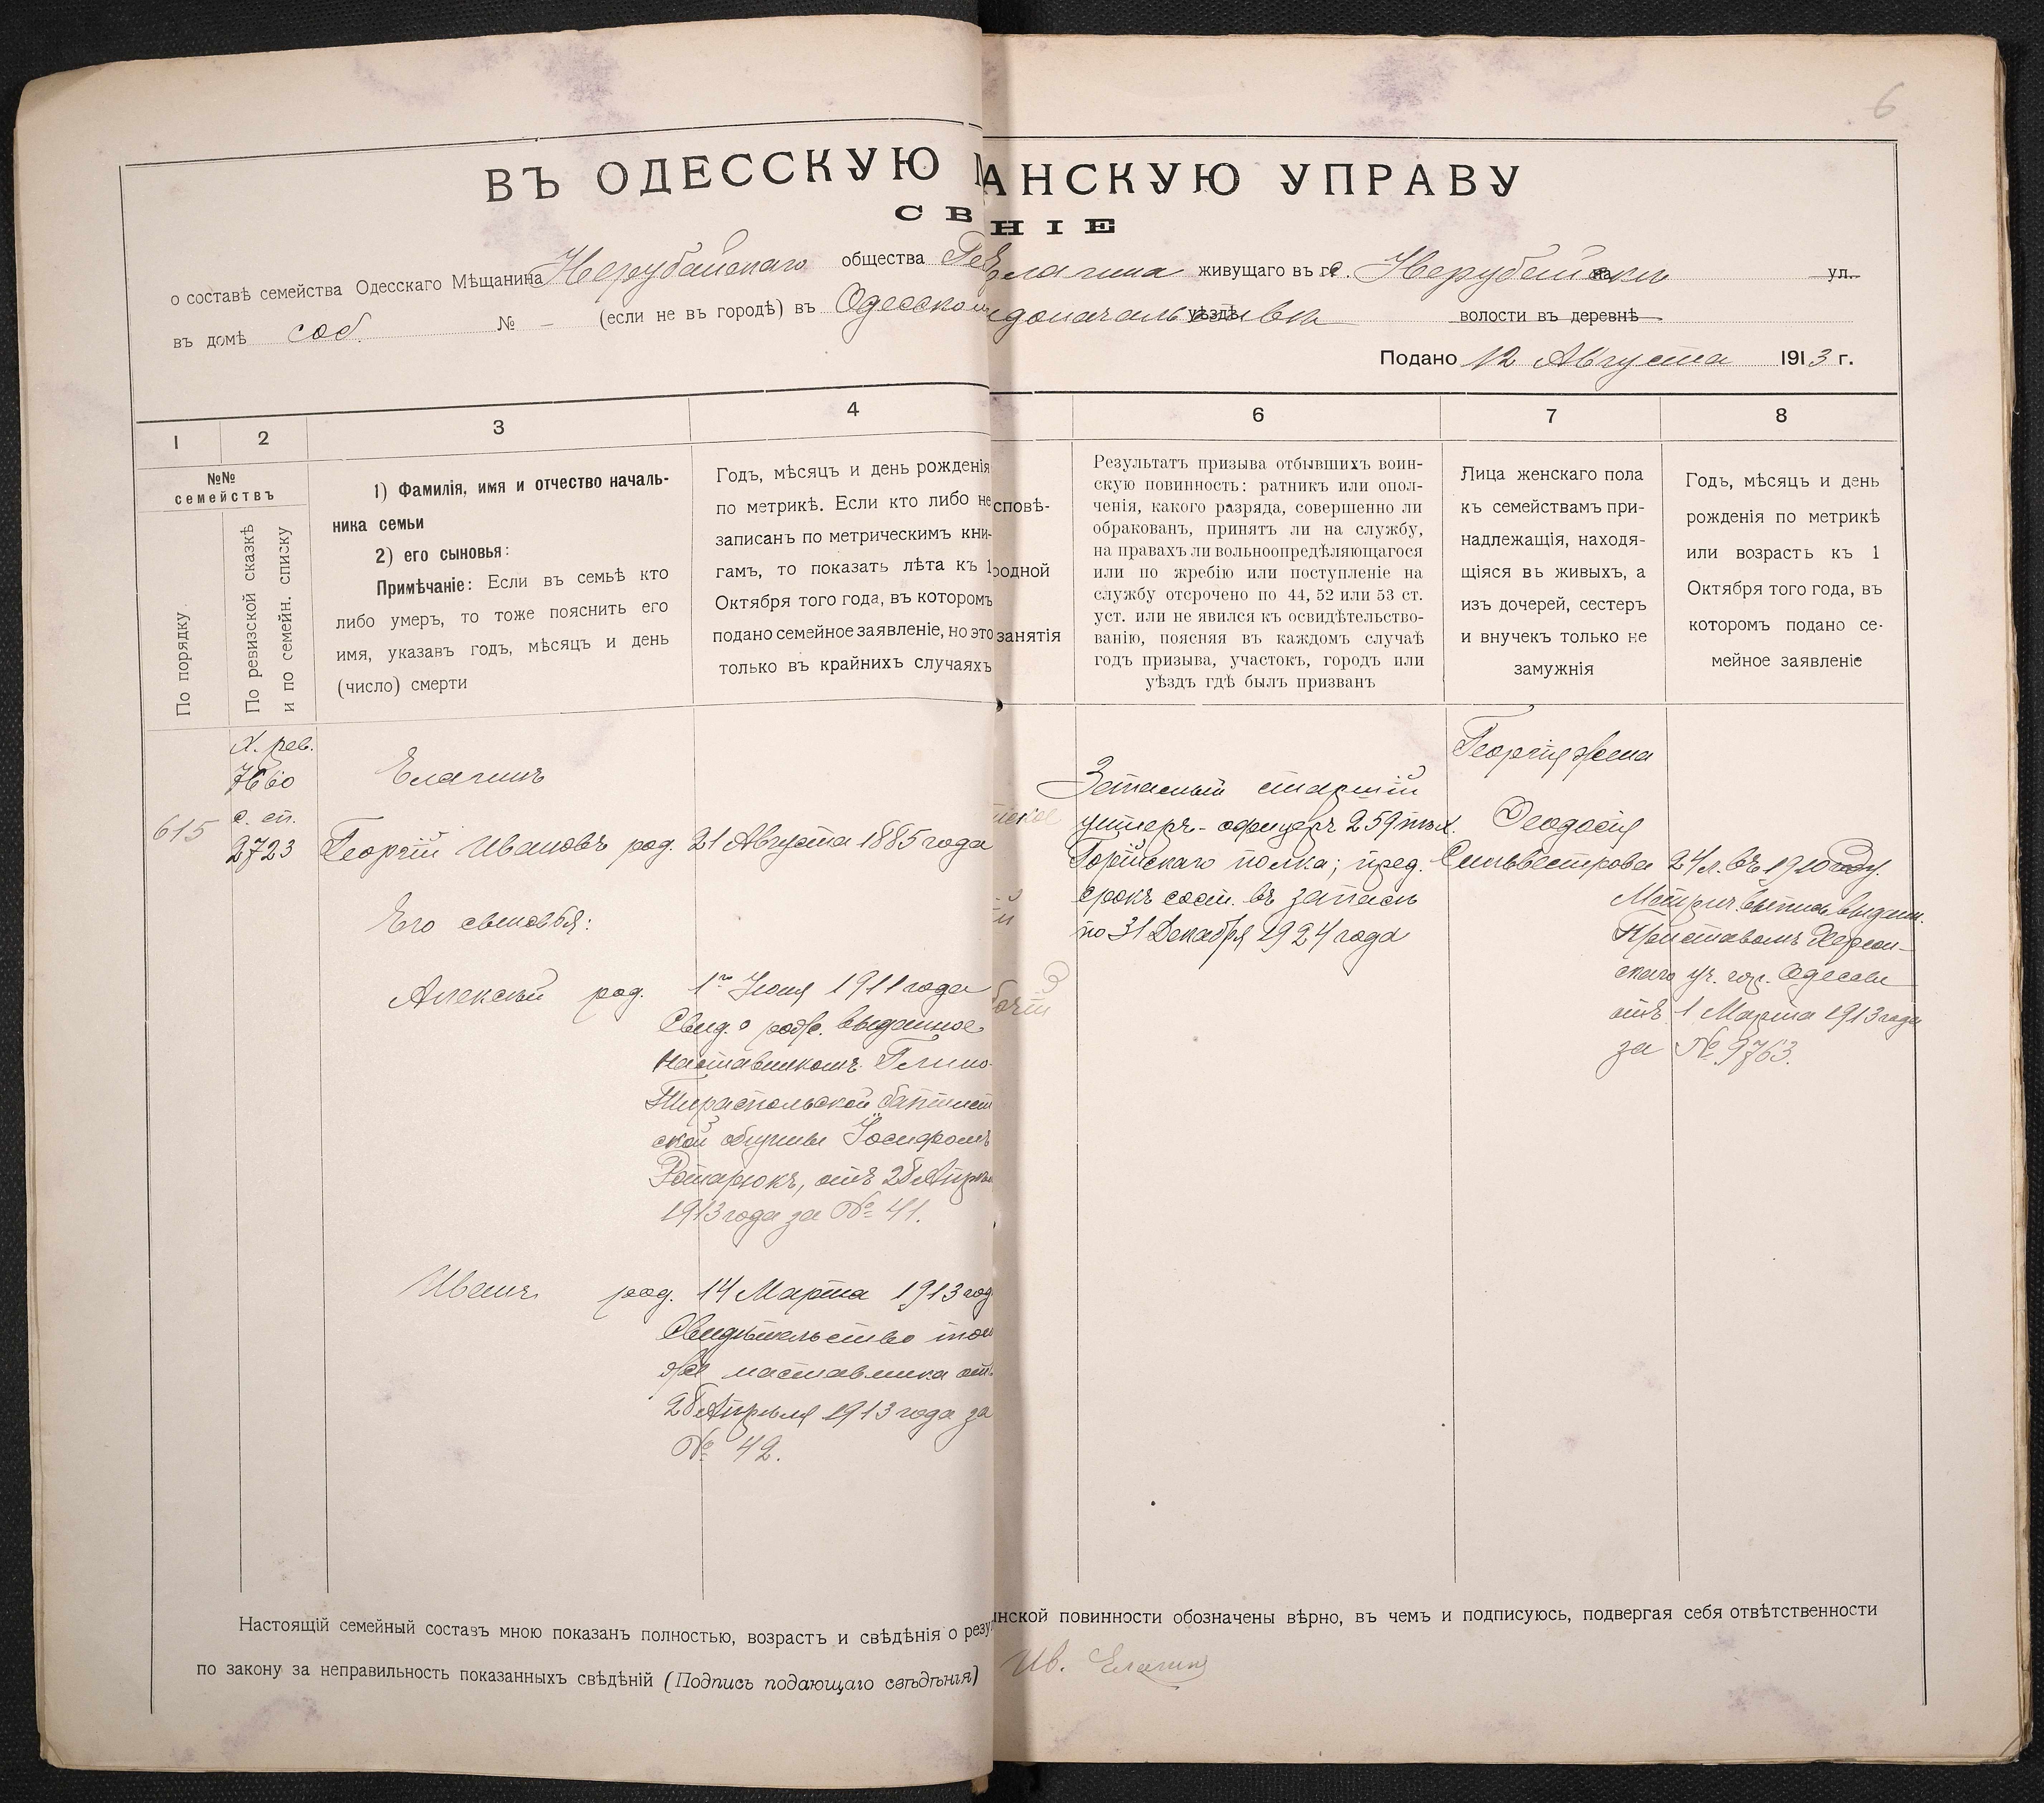 6
ВЪ ОДЕССКУЮ
АНСКУЮ УПРАВУ
СВ
НІЕ
о составѣ семейства Одесскаго Мѣщанина Нерубайскаго общества
Елагина живущаго въ г. с. Нерубайскъ ул.
въ домѣ соб. № – (если не въ городѣ) въ Одесском
доначальствѣ уѣздѣ волости въ деревнѣ
Подано 12 Августа 1913 г.
1
2
3
4
6
7
8
№№
семействъ
По порядку
По ревизской сказкѣ
и по семейн. списку
1) Фамилія, имя и отчество началь-
ника семьи
2) его сыновья:
Примѣчаніе: Если въ семьѣ кто
либо умеръ, то тоже пояснить его
имя, указавъ годъ, мѣсяцъ и день
(число) смерти
Годъ, мѣсяцъ и день рожденія
по метрикѣ. Если кто либо не
записанъ по метрическимъ кни-
гамъ, то показать лѣта къ 1
Октября того года, въ которомъ
подано семейное заявленіе, но это
только въ крайнихъ случаяхъ
сповѣ-
родной
занятія
Результатъ призыва отбывшихъ воин-
скую повинность: ратникъ или опол-
ченія, какого разряда, совершенно ли
обракованъ, принятъ ли на службу,
на правахъ ли вольноопредѣляющагося
или по жребію или поступленіе на
службу отсрочено по 44, 52 или 53 ст.
уст. или не явился къ освидѣтельство-
ванію, поясняя въ каждомъ случаѣ
годъ призыва, участокъ, городъ или
уѣздъ гдѣ былъ призванъ
Лица женскаго пола
къ семействамъ при-
надлежащія, находя-
щіяся въ живыхъ, а
изъ дочерей, сестеръ
и внучекъ только не
замужнія
Годъ, мѣсяцъ и день
рожденія по метрикѣ
или возрасть къ 1
Октября того года, въ
которомъ подано се-
мейное заявленіе
615
X. рев.
7660
с. сп.
2723
Елагинъ
Георгій Ивановъ род. 21 Августа 1885 года
Его сыновья:
Алексѣй род. 1го Іюня 1911 года
Свид. о рожд. выданное
наставникомъ
Тираспольской баптист
ской общины Іосифомъ
Ротарюкъ, отъ 28 Апрѣля
1913 года за № 41.
Иванъ род. 14 Марта 1913 год
Свидѣтельство того
же наставника отъ
28 Апрѣля 1913 года за
№ 42.
Запасный старшій
унтеръ-офицеръ 259 пѣх.
Горійскаго полка; пред.
срокъ сост. въ запасѣ
по 31 Декабря 1924 года
Георгія жена
Феодосія
Сильвестрова 24 л. въ 1910 году.
Метрич. выпись выдан.
Приставомъ Херсон-
скаго уч. гор. Одессы
отъ 1 Марта 1913 года
за № 9763.
Настоящій семейный составъ мною показанъ полностью, возрастъ и свѣдѣнія о резу
инской повинности обозначены вѣрно, въ чемъ и подписуюсь, подвергая себя отвѣтственности
по закону за неправильность показанныхъ свѣдѣній (Подпись подающаго свѣдѣнія)
Ив. Елагинъ